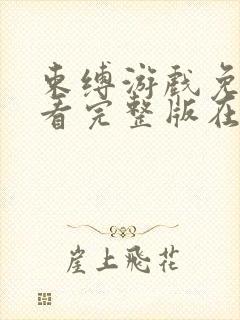 束缚游戏免
看完整版在
崖上飛花